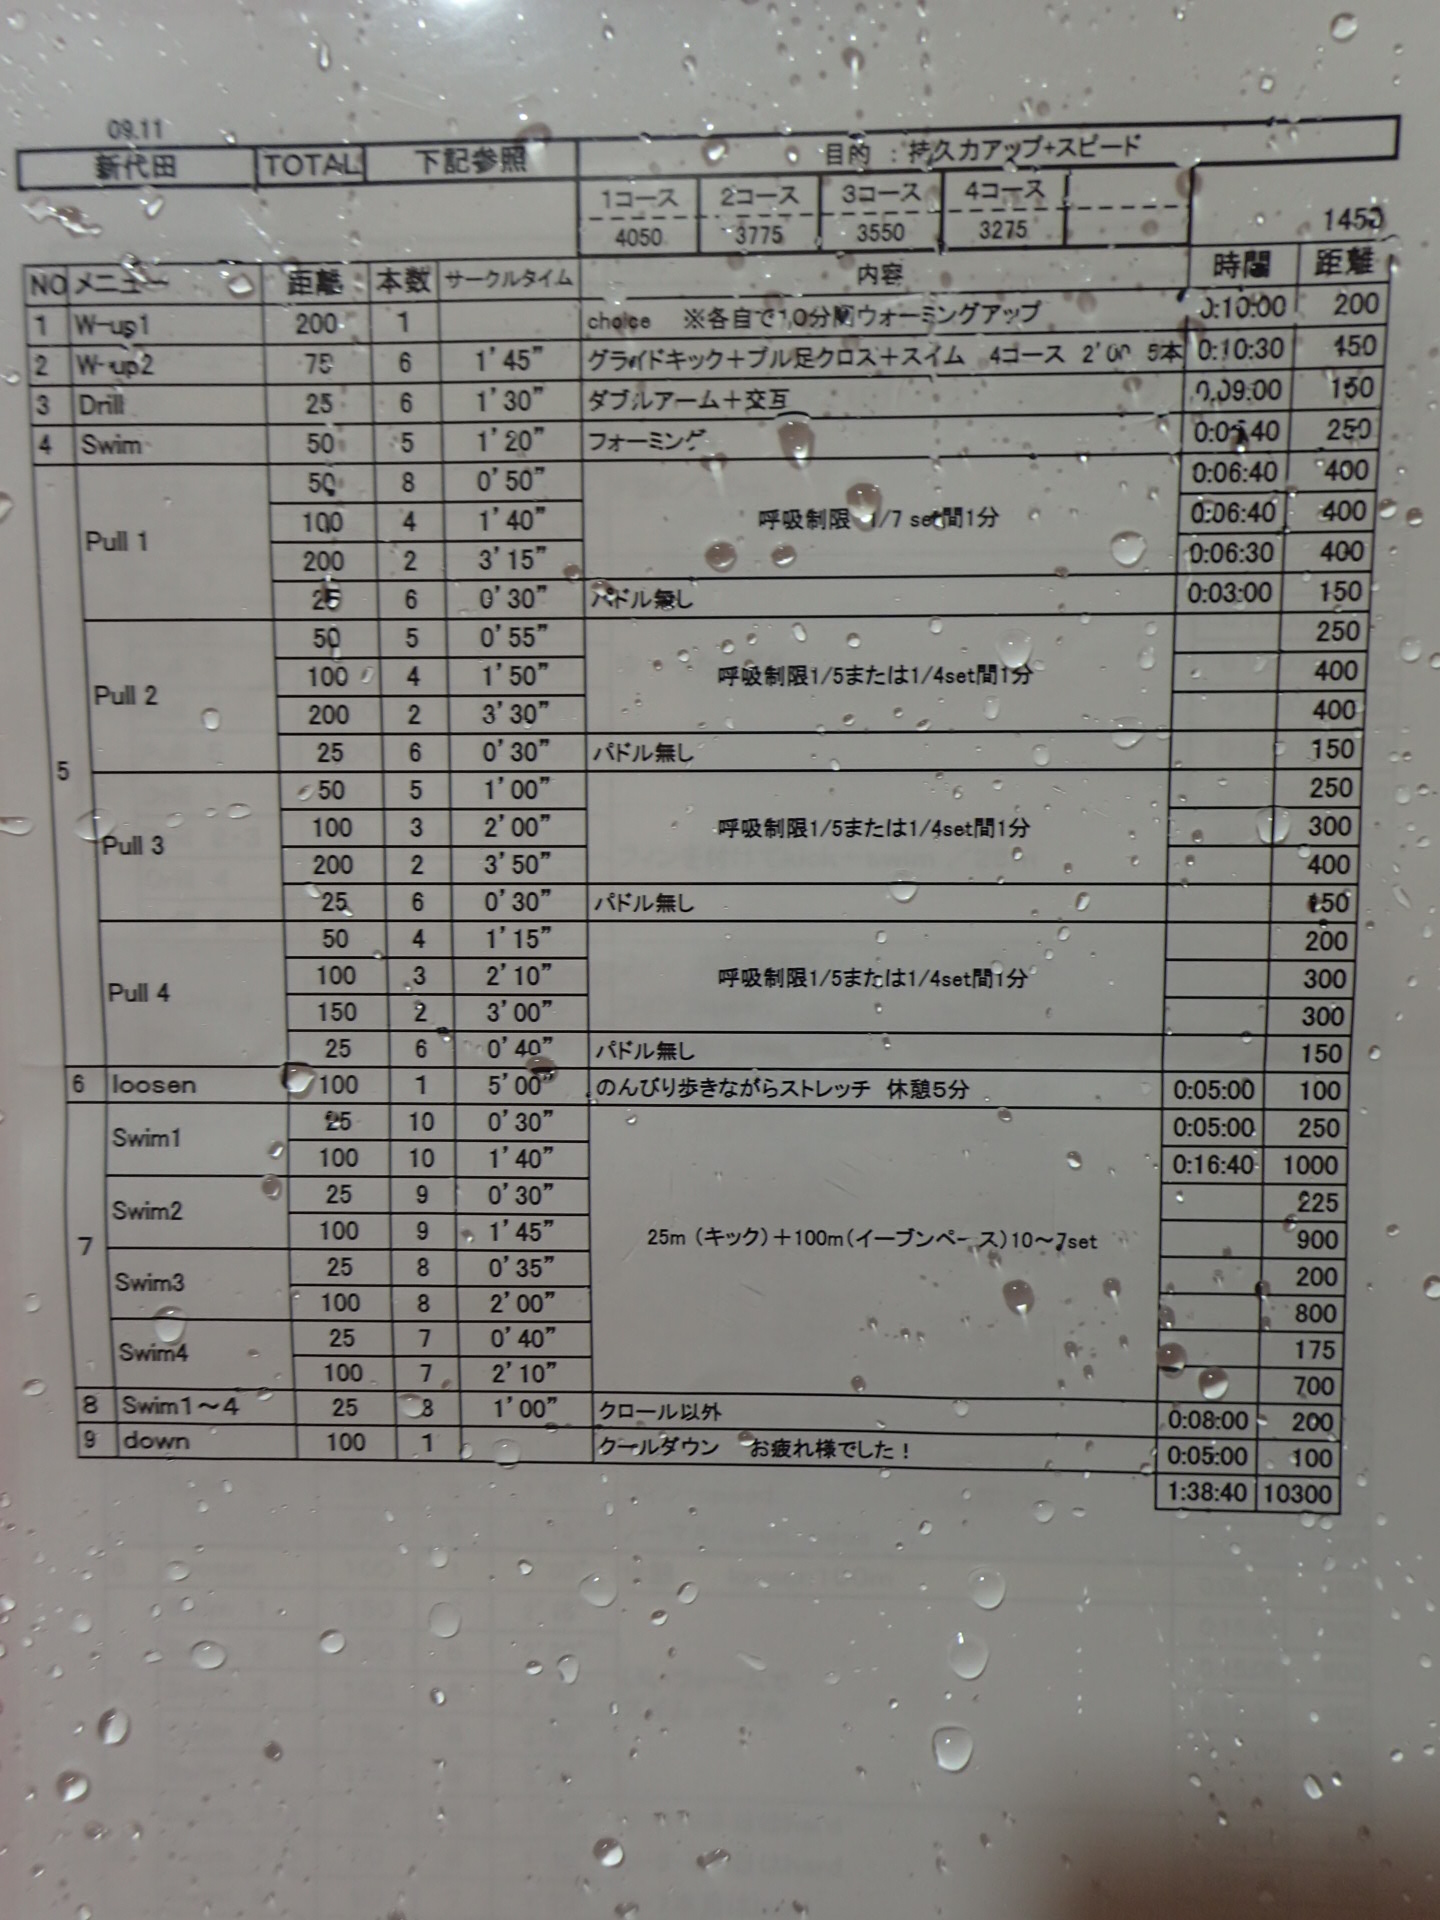 09.11
新代田 TOTAL 下記参照 目的 : 持久力アップ+スピード
1コース 2コース 3コース 4コース
4050 3775 3550 3275 1450
NO メニュー 距離 本数 サークルタイム 内容 時間 距離
1 W-up1 200 1 choice ※各自で10分間ウォーミングアップ 0:10:00 200
2 W-up2 75 6 1'45" グライドキック+プル足クロス+スイム 4コース 2'00 5本 0:10:30 450
3 Drill 25 6 1'30" ダブルアーム+交互 0:09:00 150
4 Swim 50 5 1'20" フォーミング 250
5 Pull 1 50 8 0'50" 呼吸制限 1/7 set間1分 0:06:40 400
100 4 1'40" 0:06:40 400
200 2 3'15" 0:06:30 400
25 6 0'30" パドル無し 0:03:00 150
Pull 2 50 5 0'55" 呼吸制限1/5または1/4set間1分 250
100 4 1'50" 400
200 2 3'30" 400
25 6 0'30" パドル無し 150
Pull 3 50 5 1'00" 呼吸制限1/5または1/4set間1分 250
100 3 2'00" 300
200 2 3'50" 400
25 6 0'30" パドル無し 150
Pull 4 50 4 1'15" 呼吸制限1/5または1/4set間1分 200
100 3 2'10" 300
150 2 3'00" 300
25 6 0'40" パドル無し 150
6 loosen 100 1 5'00" のんびり歩きながらストレッチ 休憩5分 0:05:00 100
7 Swim1 25 10 0'30" 25m(キック)+100m(イーブンペース)10～7set 0:05:00 250
100 10 1'40" 0:16:40 1000
Swim2 25 9 0'30" 225
100 9 1'45" 900
Swim3 25 8 0'35" 200
100 8 2'00" 800
Swim4 25 7 0'40" 175
100 7 2'10" 700
8 Swim1～4 25 8 1'00" クロール以外 0:08:00 200
9 down 100 1 クールダウン お疲れ様でした! 0:05:00 100
1:38:40 10300